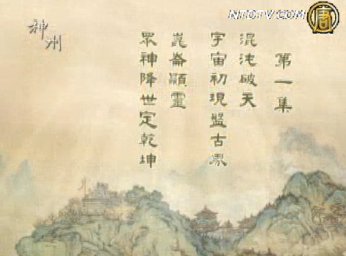 神州
NTDTV.COM
唐
第一集
混沌破天
宇宙初現盤古象
崑崙顯靈
眾神降世定乾坤